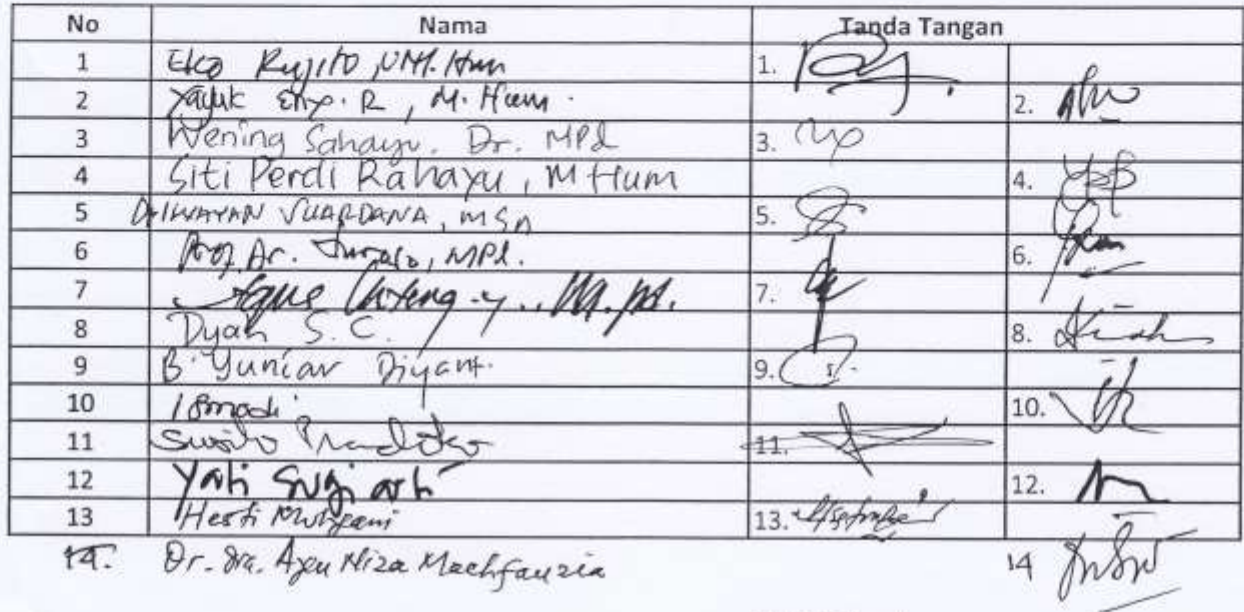 No Nama Tanda Tangan
1 Eko Rujito, M. Hum 1.
2 Yayuk Eny. R, M. Hum. 2.
3 Wening Sahayu. Dr. MPd 3.
4 Siti Perdi Rahayu, M Hum 4.
5 Dr I WAYAN SUARDANA, MSn 5.
6 Prof. Dr. Suroso, MPd. 6.
7 M.Pd. 7.
8 Dyah S. C. 8.
9 B. Yuniar Diyanti 9.
10 Ismadi 10.
11 Susilo Pradoko 11.
12 Yati Sugiarti 12.
13 Hesti Mulyani 13.
14. Dr. Dra. Ayu Niza Machfauzia 14